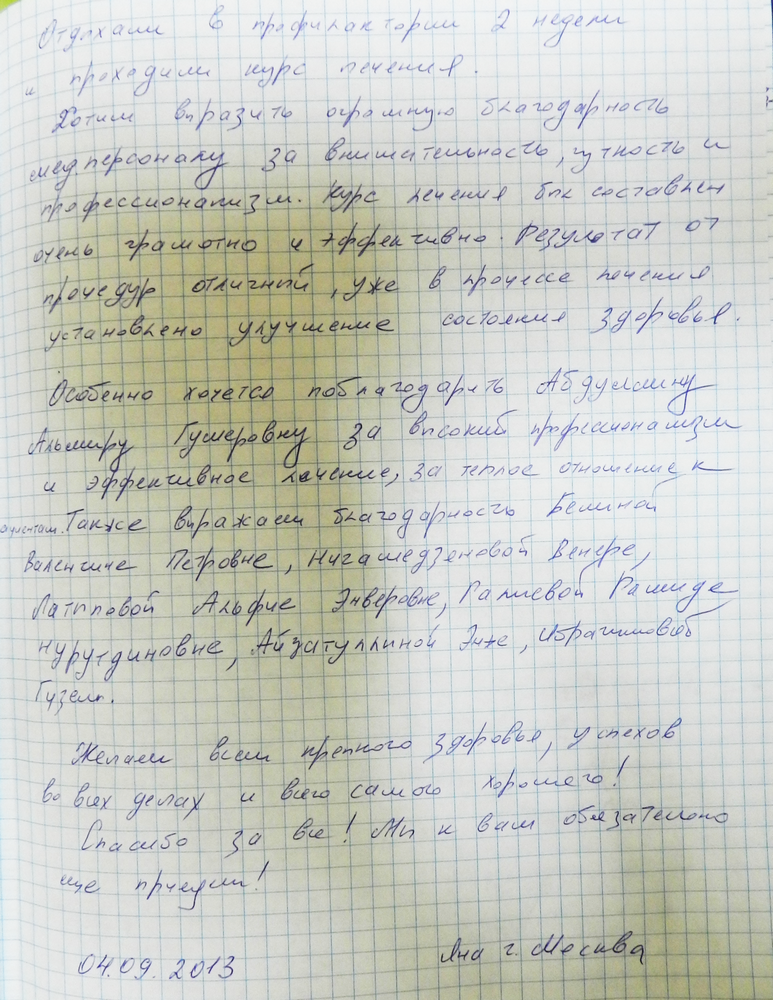 Отдыхали в профилактории 2 недели
и проходили курс лечения.
Хотим выразить огромную благодарность
медперсоналу за внимательность, чуткость и
профессионализм. Курс лечения был составлен
очень грамотно и эффективно. Результат от
процедур отличный, уже в процессе лечения
установлено улучшение состояния здоровья.
Особенно хочется поблагодарить Абдуллину
Альмиру Гумеровну за высокий профессионализм
и эффективное лечение, за теплое отношение к
пациентам. Также выражаем благодарность Белиной
Валентине Петровне, Нигамедзеновой Венере,
Латыповой Альфие Энверовне, Галиевой Рашиде
Нурутдиновне, Айзатуллиной Энже, Ибрагимовой
Гузели.
Желаем всем крепкого здоровья, успехов
во всех делах и всего самого хорошего!
Спасибо за все! Мы к вам обязательно
еще приедем!
04.09.2013 Яна г. Москва